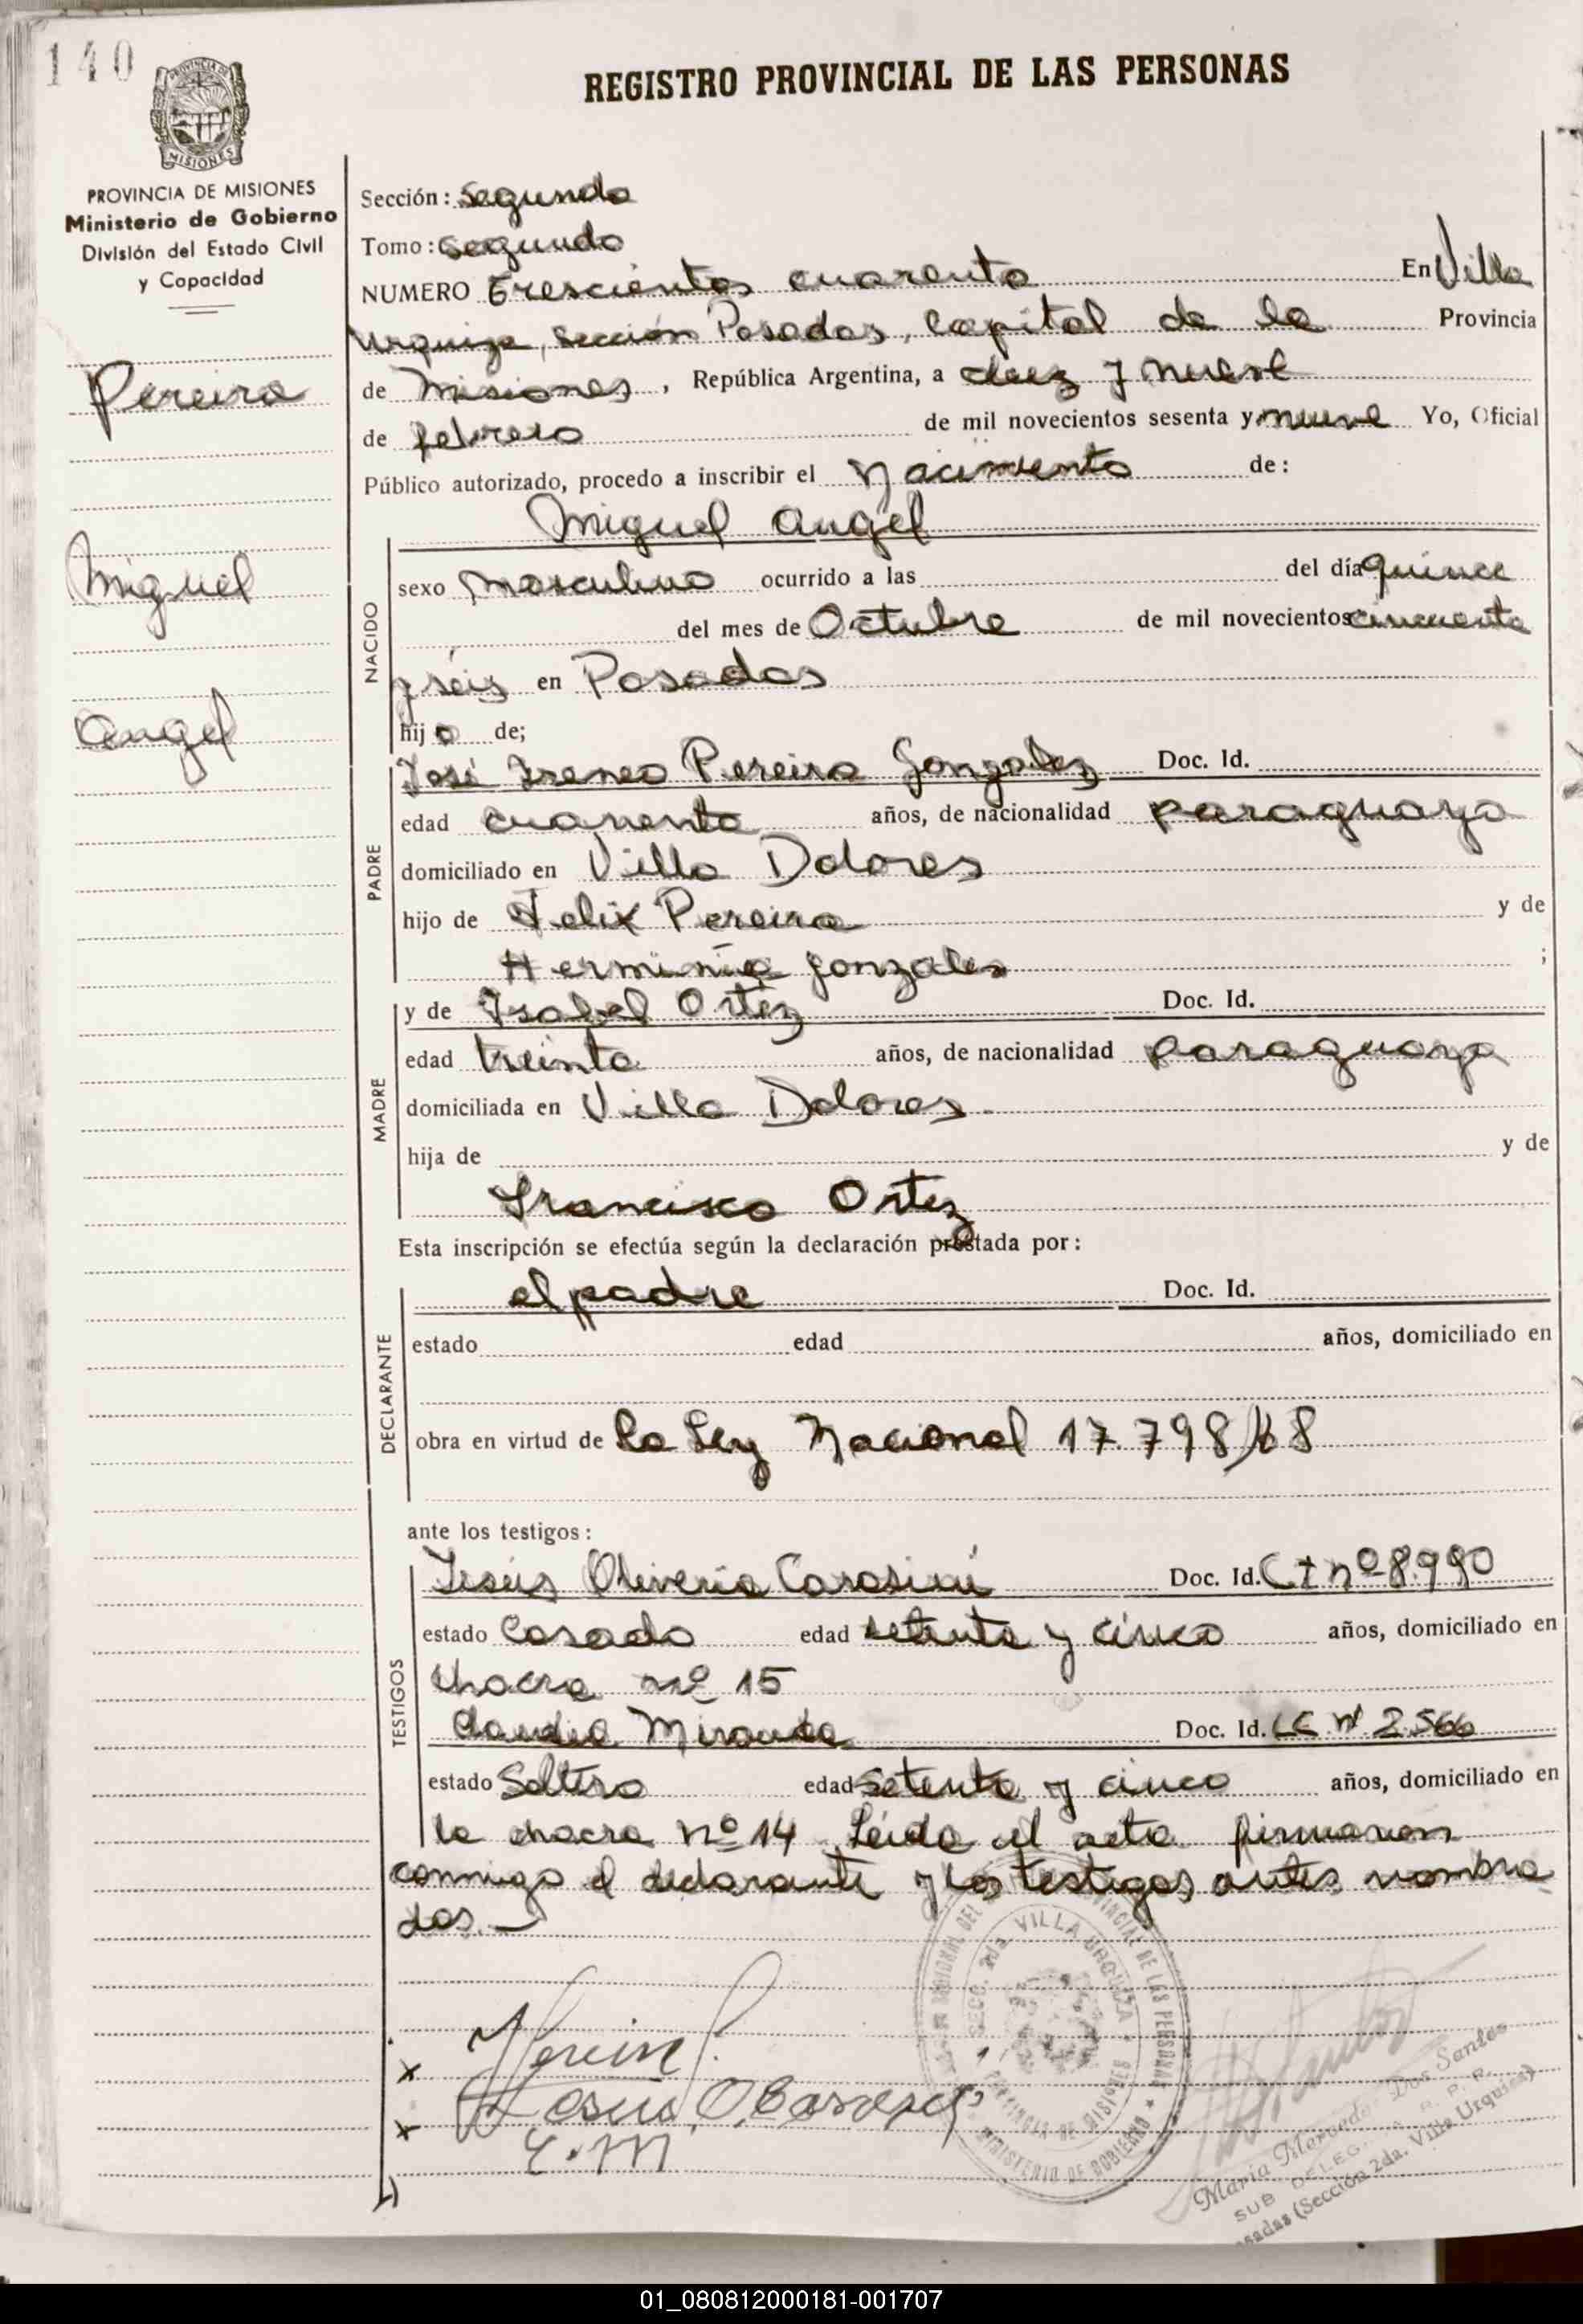 140
PROVINCIA DE
MISIONES
REGISTRO PROVINCIAL DE LAS PERSONAS
PROVINCIA DE MISIONES
Ministerio de Gobierno
División del Estado Civil
y Capacidad
Pereira
Miguel
Angel
Sección: Segunda
Tomo: Segundo
NUMERO Trescientos cuarenta En Villa
Urquiza, Sección Posadas, Capital de la Provincia
de Misiones, República Argentina, a diez y nueve
de febrero de mil novecientos sesenta y nueve Yo, Oficial
Público autorizado, procedo a inscribir el Nacimiento de:
Miguel Angel
NACIDO
sexo Masculino ocurrido a las del día quince
del mes de Octubre de mil novecientos cincuenta
y séis en Posadas
hijo de;
PADRE
José Ireneo Pereira Gonzalez Doc. Id.
edad cuarenta años, de nacionalidad paraguaya
domiciliado en Villa Dolores
hijo de Felix Pereira y de
Herminia Gonzales ;
MADRE
y de Isabel Ortéz Doc. Id.
edad treinta años, de nacionalidad paraguaya
domiciliada en Villa Dolores
hija de y de
Francisca Ortez
Esta inscripción se efectúa según la declaración prestada por:
DECLARANTE
el padre Doc. Id.
estado edad años, domiciliado en
obra en virtud de La Ley Nacional 17.798/68
ante los testigos:
TESTIGOS
Jesús Oliveria Doc. Id. C I nº 8.990
estado Casado edad setenta y cinco años, domiciliado en
chacra nº 15
Claudia Miranda Doc. Id. LC Nº 2.566
estado Soltera edad Setenta y cinco años, domiciliado en
la chacra Nº 14 Leída el acta firmaron
conmigo el declarante y los testigos antes nombra
dos.
x
x Jesus O.
C. M
SECC. 2da. VILLA URQUIZA
PROVINCIAL DE LAS PERSONAS
PROVINCIA DE MISIONES
MINISTERIO DE GOBIERNO
María Mercedes Dos Santos
SUB DELEG. R. P. P.
Posadas (Sección 2da. Villa Urquiza)
01_080812000181-001707